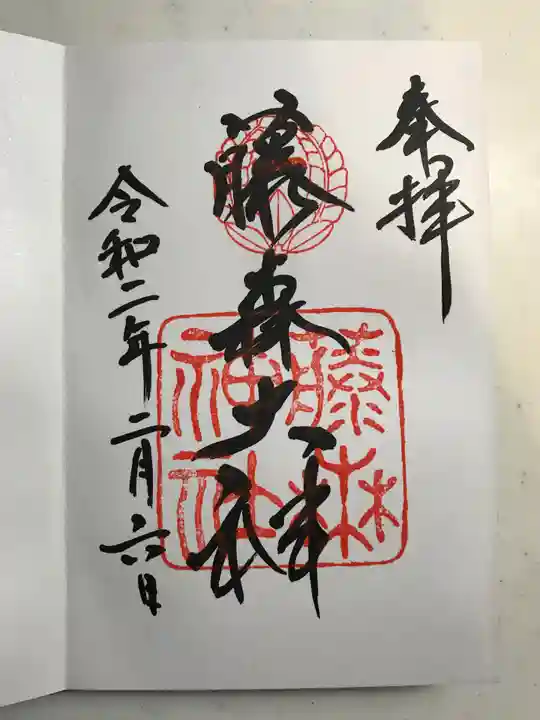 奉拝
藤森大神
令和二年二月六日
藤森
神社